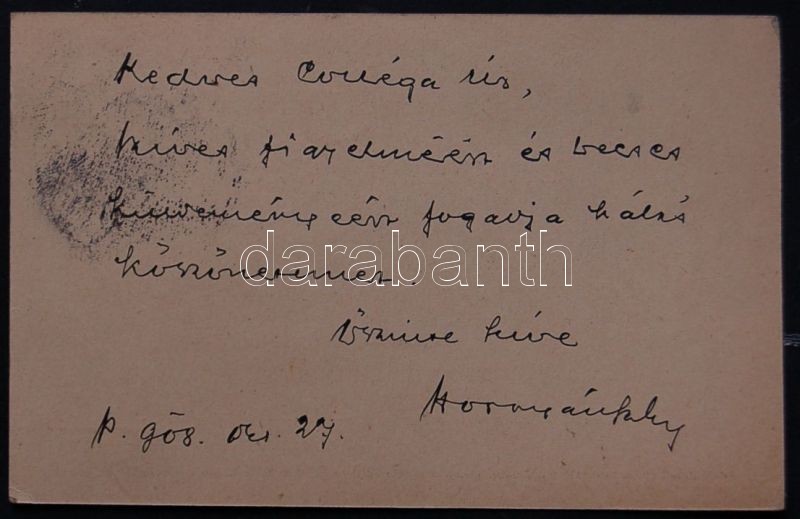 Kedves Colléga Úr,
szíves figyelméért és becses
küldeményéért fogadja hálás
köszönetemet.
darabanth
Őszinte híve
Hornyánszky
B. 908. Oct. 27.